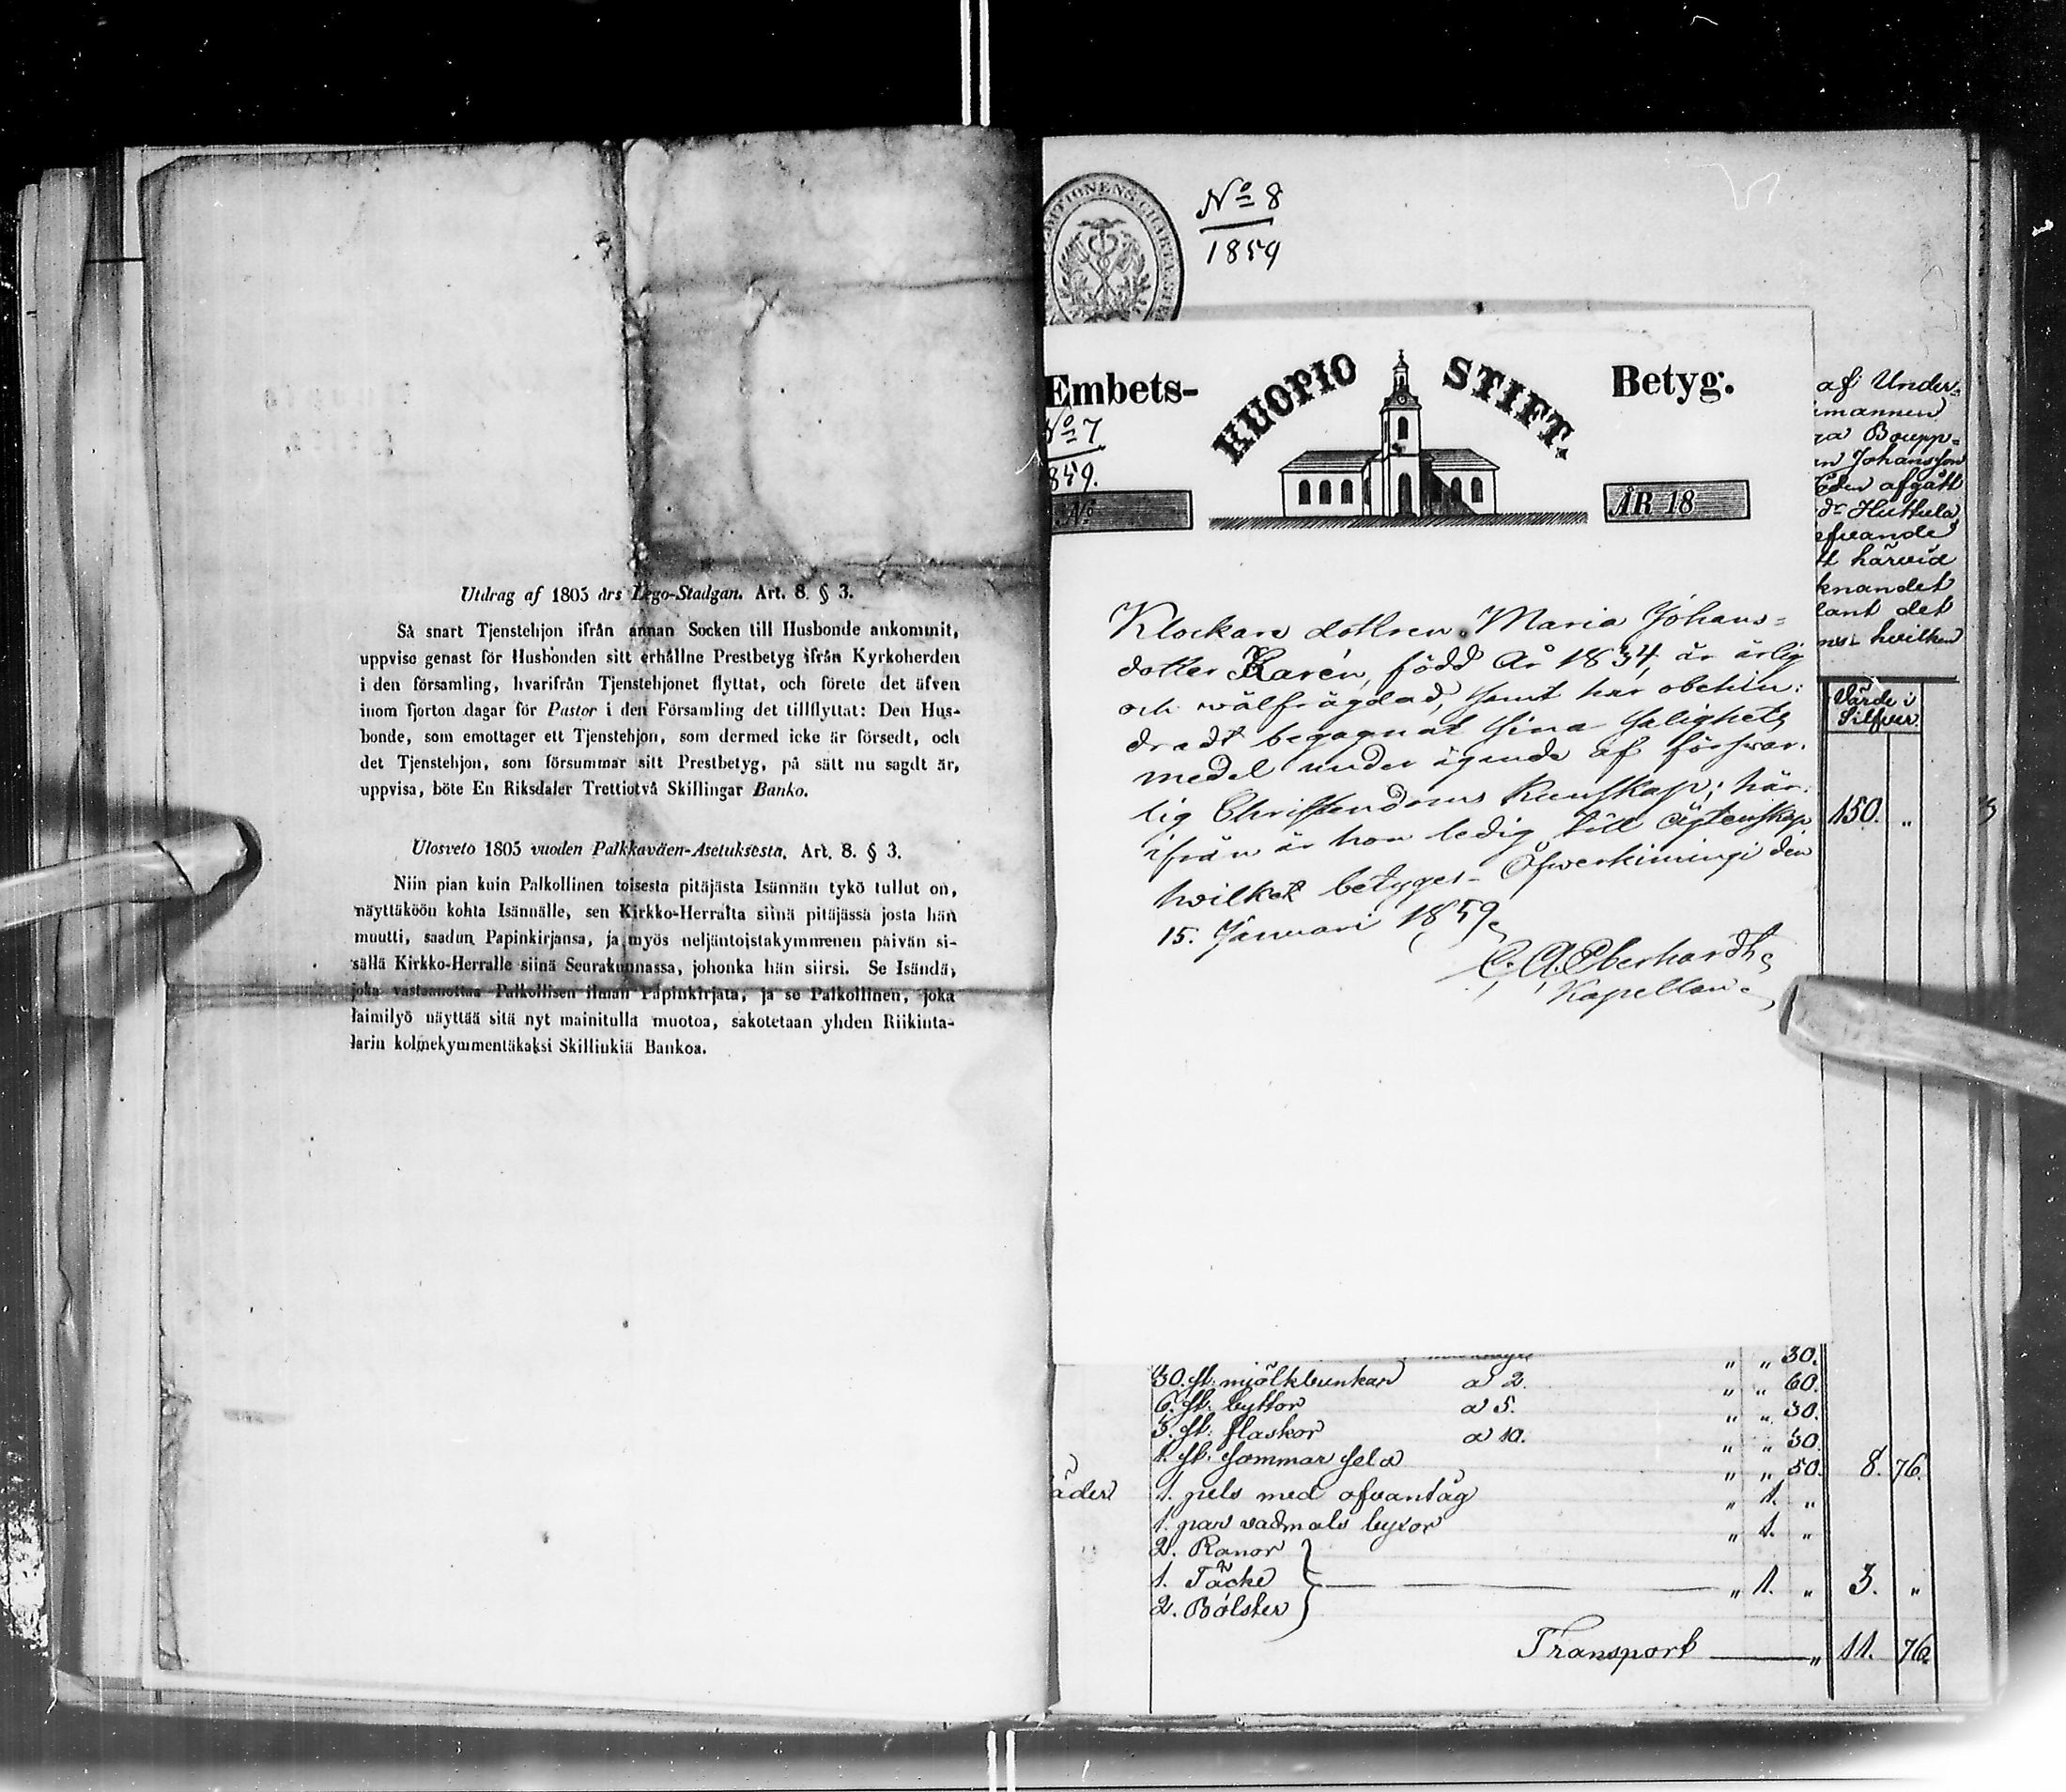 Utdrag af 1805 års Lego-Stadgan. Art. 8. § 3.
Så snart Tjenstehjon ifrån annan Socken till Husbonde ankommit,
uppvise genast för Husbonden sitt erhållne Prestbetyg ifrån Kyrkoherden
i den församling, hvarifrån Tjenstehjonet flyttat, och förete det äfven
inom fjorton dagar för Pastor i den Församling det tillflyttat: Den Hus-
bonde, som emottager ett Tjenstehjon, som dermed icke är försedt, och
det Tjenstehjon, som försummar sitt Prestbetyg, på sätt nu sagdt är,
uppvisa, böte En Riksdaler Trettiotvå Skillingar Banko.
Ulosveto 1805 vuoden Palkkaväen-Asetuksesta. Art. 8. § 3.
Niin pian kuin Palkollinen toisesta pitäjästa Isännän tykö tullut on,
näyttäköön kohta Isännälle, sen Kirkko-Herralta siinä pitäjässä josta hän
muutti, saadun Papinkirjansa, ja myös neljäntoistakymmenen päivän si-
sällä Kirkko-Herralle siinä Seurakunnassa, johonka hän siirsi. Se Isändä,
joka vastaanottaa Palkollisen ilman Papinkirjata, ja se Palkollinen, joka
laimilyö näyttää sitä nyt mainitulla muotoa, sakotetaan yhden Riikinta-
larin kolmekymmentäkaksi Skillinkiä Bankoa.
No 8
1859
Embets- KUOPIO STIFT. Betyg.
No 7
859.
No
ÅR 18
Klockare dottren Maria Johans=
dotter Karén, född år 1834, är ärlig
och wälfrägdad, samt har obehin:
dradt begagnat sina salighets
medel under ägande af förswar.
lig Christendoms kunskap; här:
ifrån är hon ledig till ägtenskap
hvilket betyges. Öfwerkimingi den
15. Januari 1859.
C. A. Eberhardt
Kapellan.
af Under=
mannen
ga Boupp=
n Johansson
öden afgått
d. Huttula
efvande
tt härvid
knandet
lant det
ns hvilken
Värde i
Silfver.
150. "
" " 30.
30. st. mjölkbunkar a 2. " " 60.
6. st. byttor a 5. " " 30.
3. st. flaskor a 10. " " 30.
1. st. sommar sela " " 50. 8. 76.
äder 1. pels med ofvantåg " 1. "
1. par vadmals byxor " 1. "
2. Ranor
1. Täcke " 1. " 3. "
2. Bolster
Transport " 11. 76.